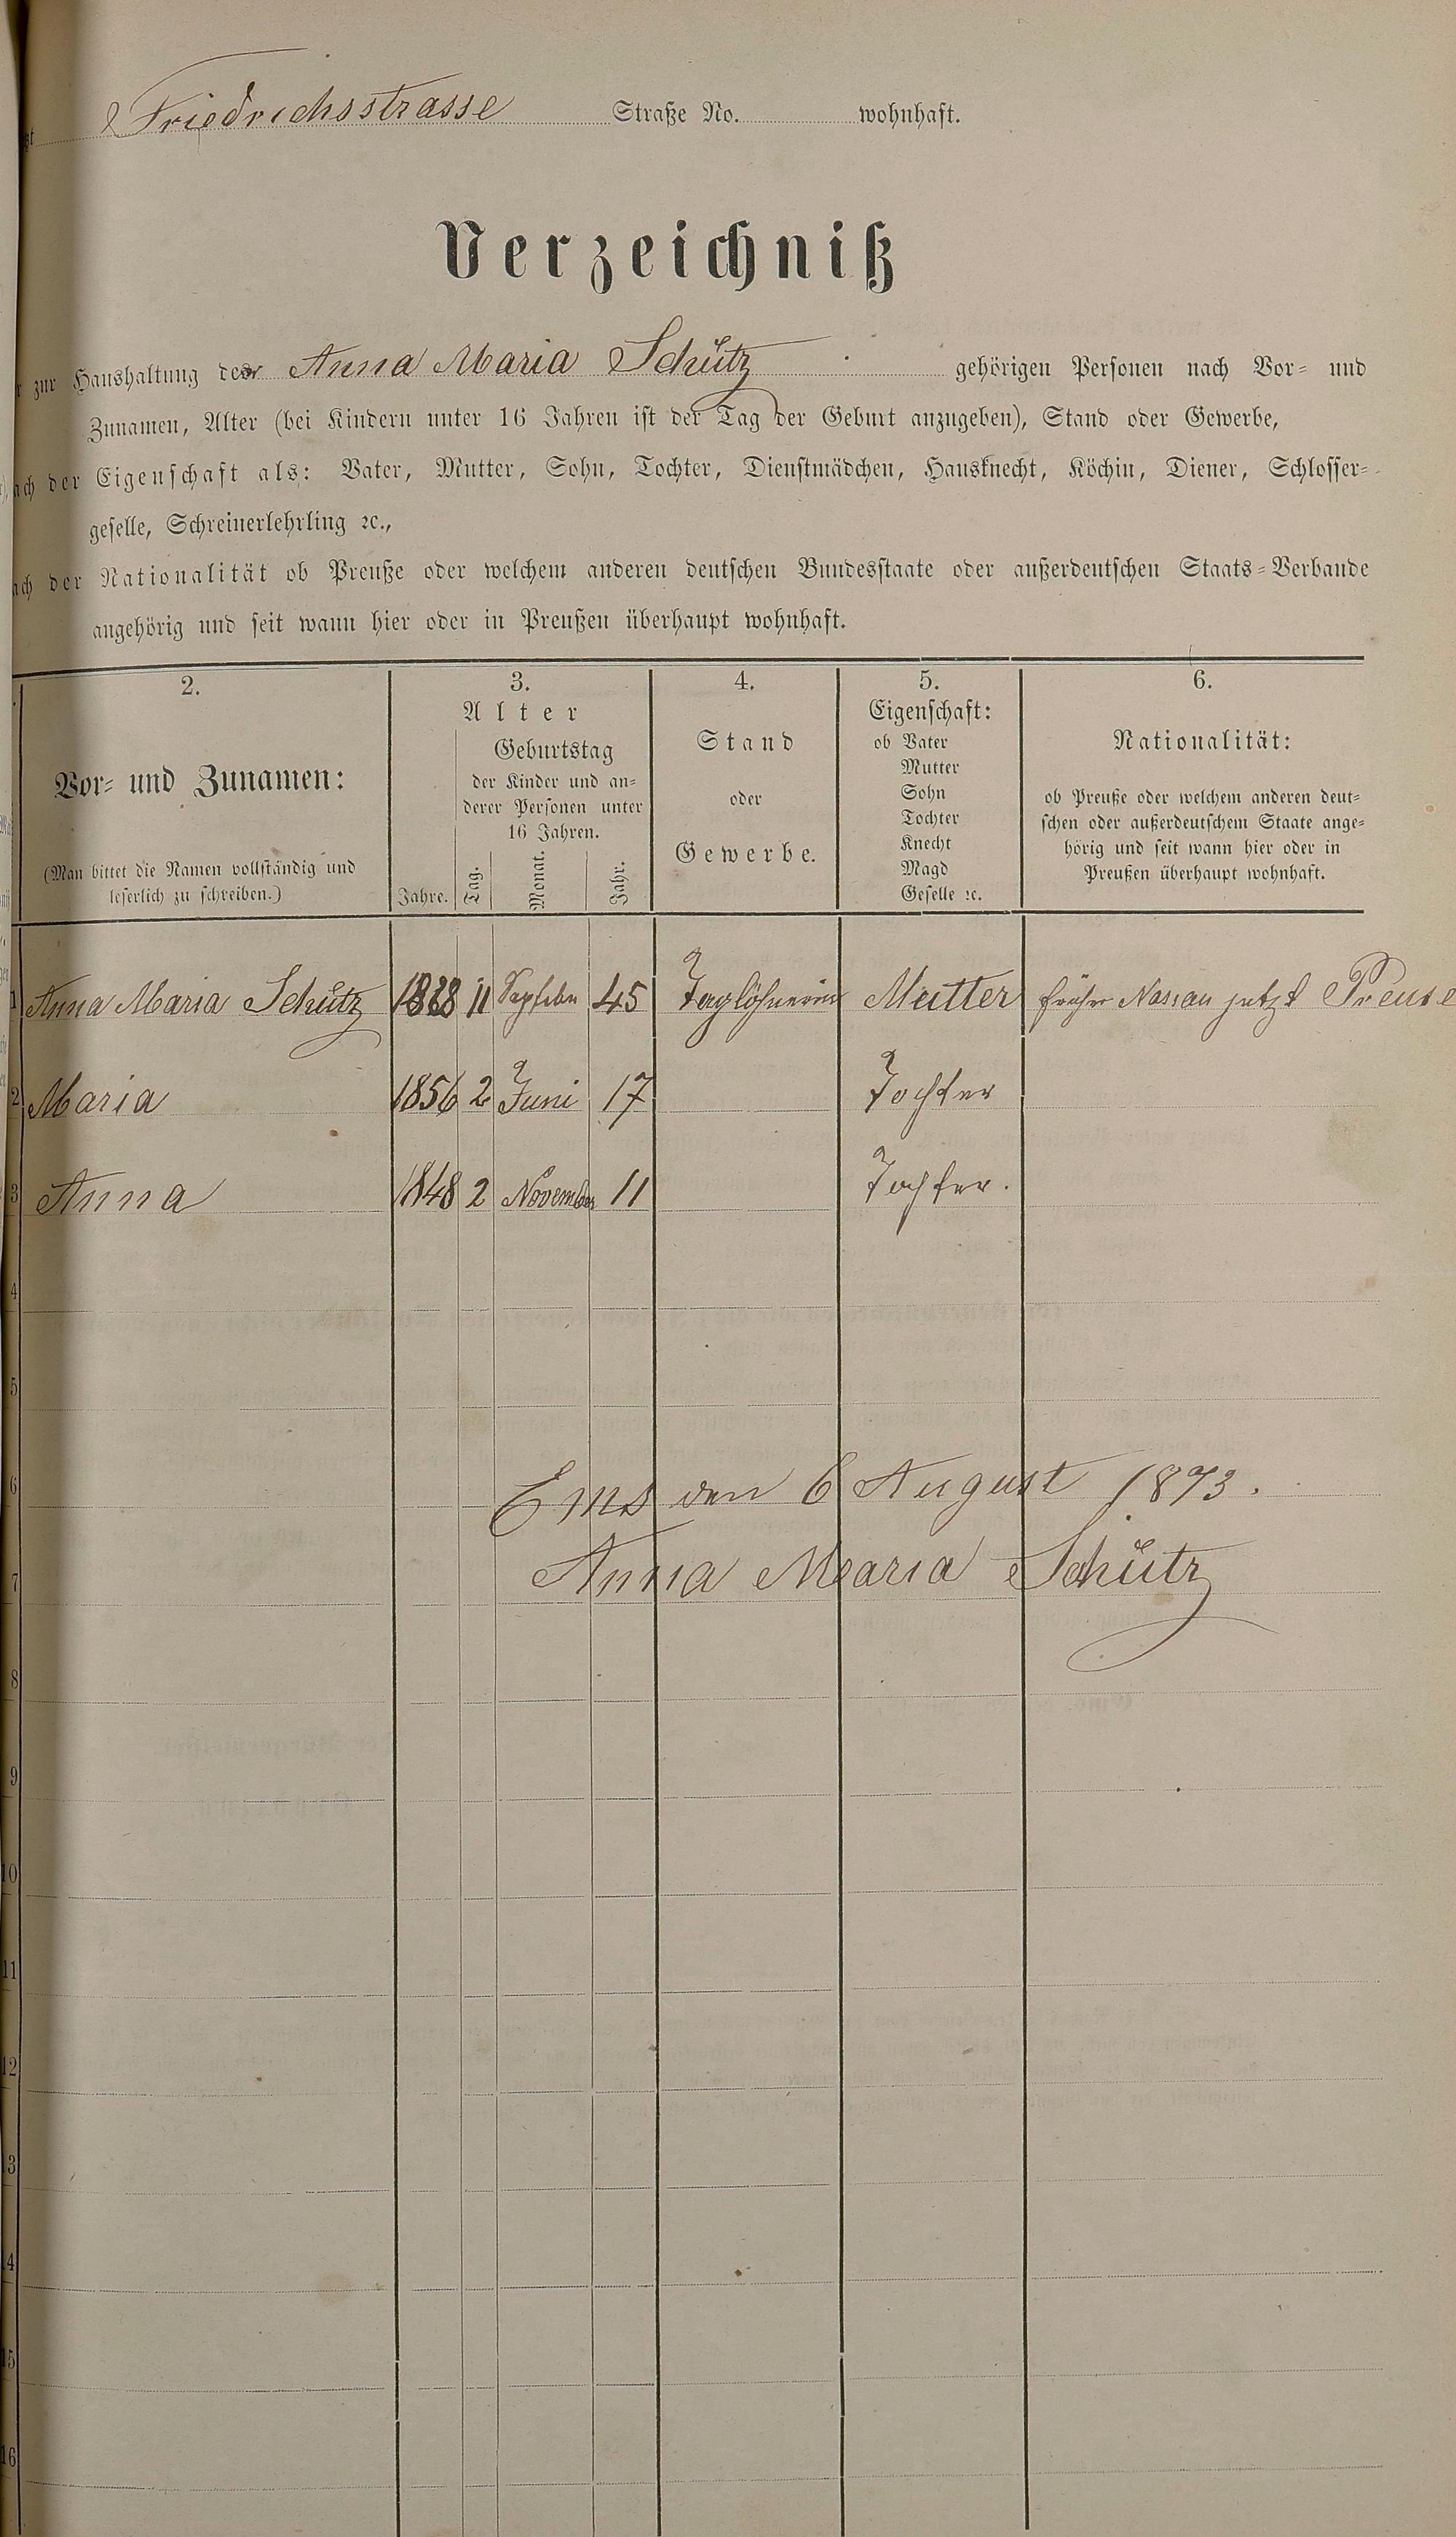 Friedrichsstrasse Straße No. wohnhaft.
Verzeichniß
zur Haushaltung der Anna Maria Schütz gehörigen Personen nach Vor- und
Zunamen, Alter (bei Kindern unter 16 Jahren ist der Tag der Geburt anzugeben), Stand oder Gewerbe,
der Eigenschaft als: Vater, Mutter, Sohn, Tochter, Dienstmädchen, Hausknecht, Köchin, Diener, Schlosser-
geselle, Schreinerlehrling ꝛc.,
der Nationalität ob Preuße oder welchem anderen deutschen Bundesstaate oder außerdeutschen Staats-Verbande
angehörig und seit wann hier oder in Preußen überhaupt wohnhaft.
2.
Vor- und Zunamen:
(Man bittet die Namen vollständig und
leserlich zu schreiben.)
3.
Alter
Geburtstag
der Kinder und an-
derer Personen unter
16 Jahren.
Jahre. Tag. Monat. Jahr.
4.
Stand
oder
Gewerbe.
5.
Eigenschaft:
ob Vater
Mutter
Sohn
Tochter
Knecht
Magd
Geselle ꝛc.
6.
Nationalität:
ob Preuße oder welchem anderen deut-
schen oder außerdeutschem Staate ange-
hörig und seit wann hier oder in
Preußen überhaupt wohnhaft.
1 Anna Maria Schütz 1828 11 45 Taglöhnerin Mutter früher Nassau jetzt Preuse
2 Maria 1856 2 Juni 17 Tochter
3 Anna 1848 2 November 11 Tochter.
4
5
6 Ems den 6 August 1873.
7 Anna Maria Schütz
8
9
10
11
12
13
14
15
16